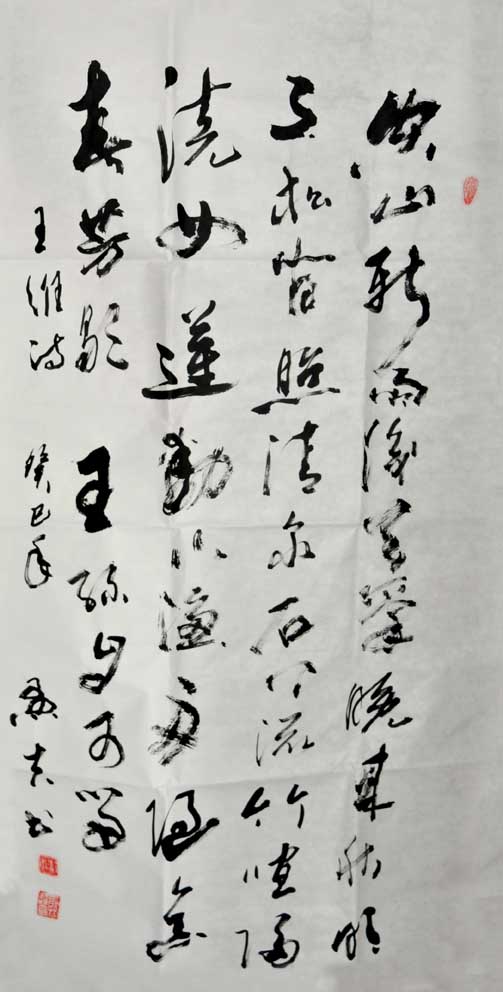 空山新雨後天氣晚来秋明
月松間照清泉石上流竹喧歸
浣女蓮動下漁舟随意
春芳歇王孫自可留
王維詩 癸巳年 志书